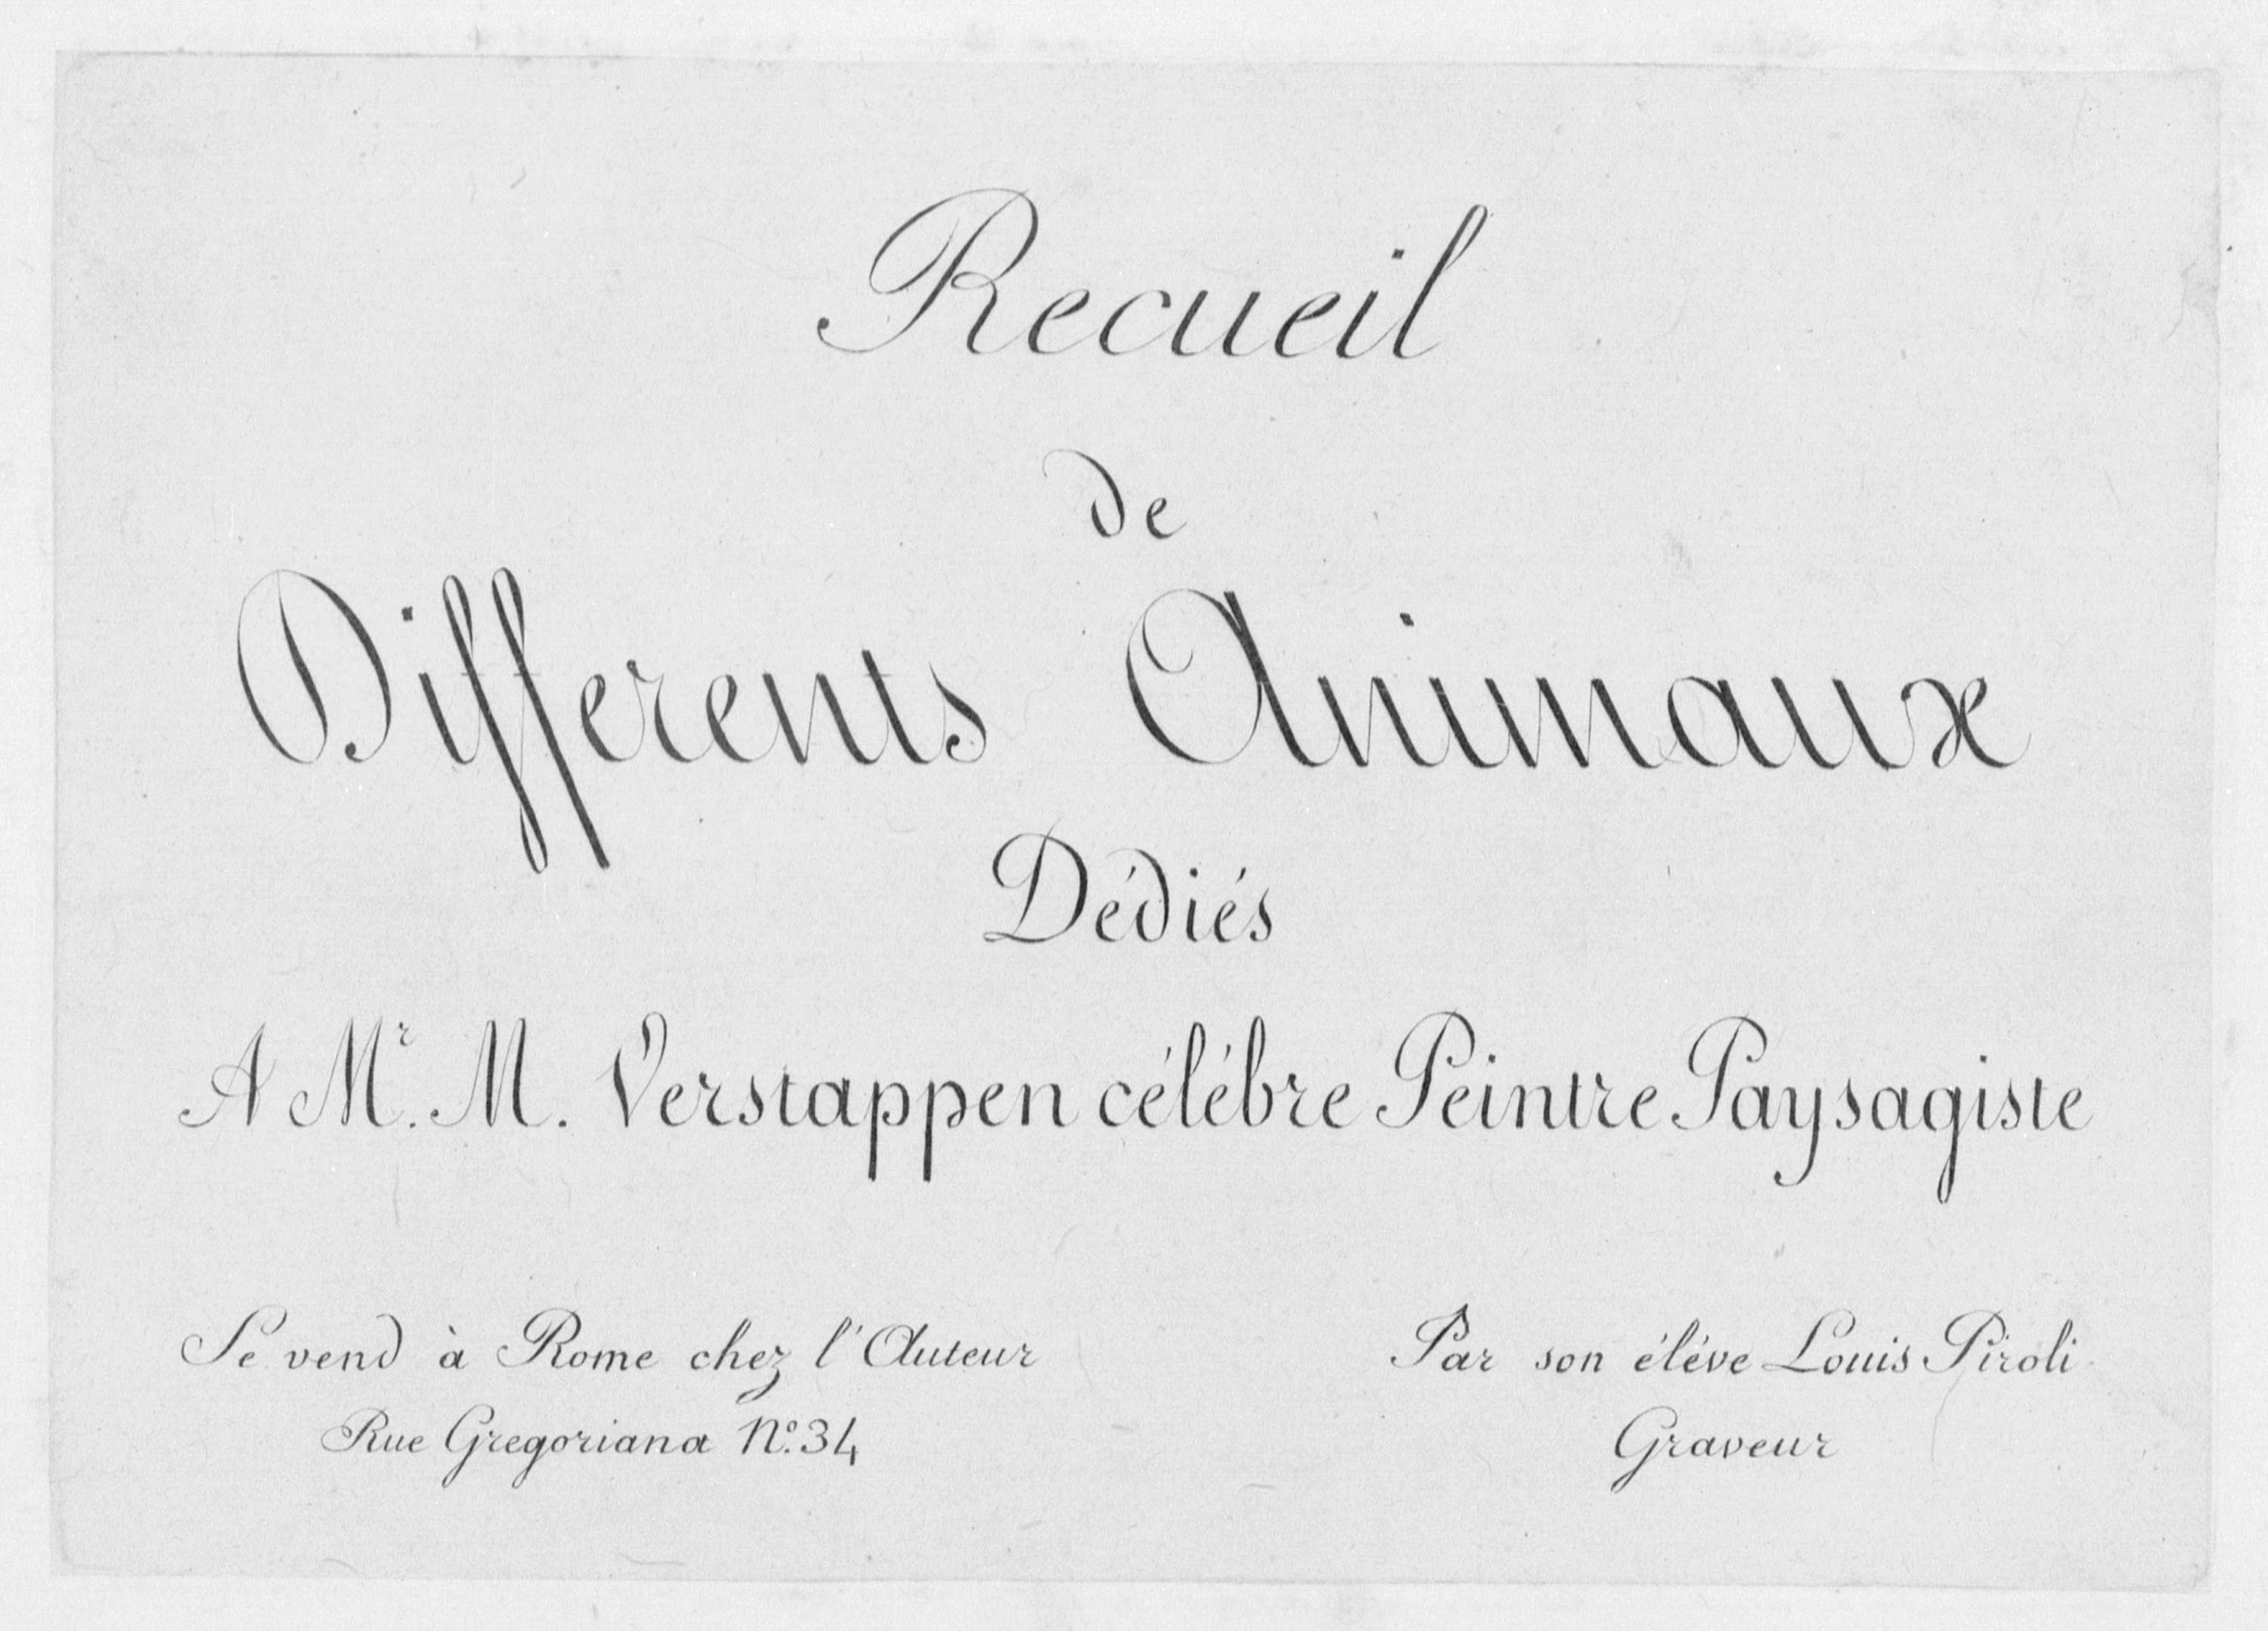 Recueil
de
Differents Animaux
Dédiés
A Mr. M. Verstappen célébre Peintre Paysagiste
Se vend à Rome chez l'Auteur
Rue Gregoriana No. 34
Par son éléve Louis Piroli
Graveur